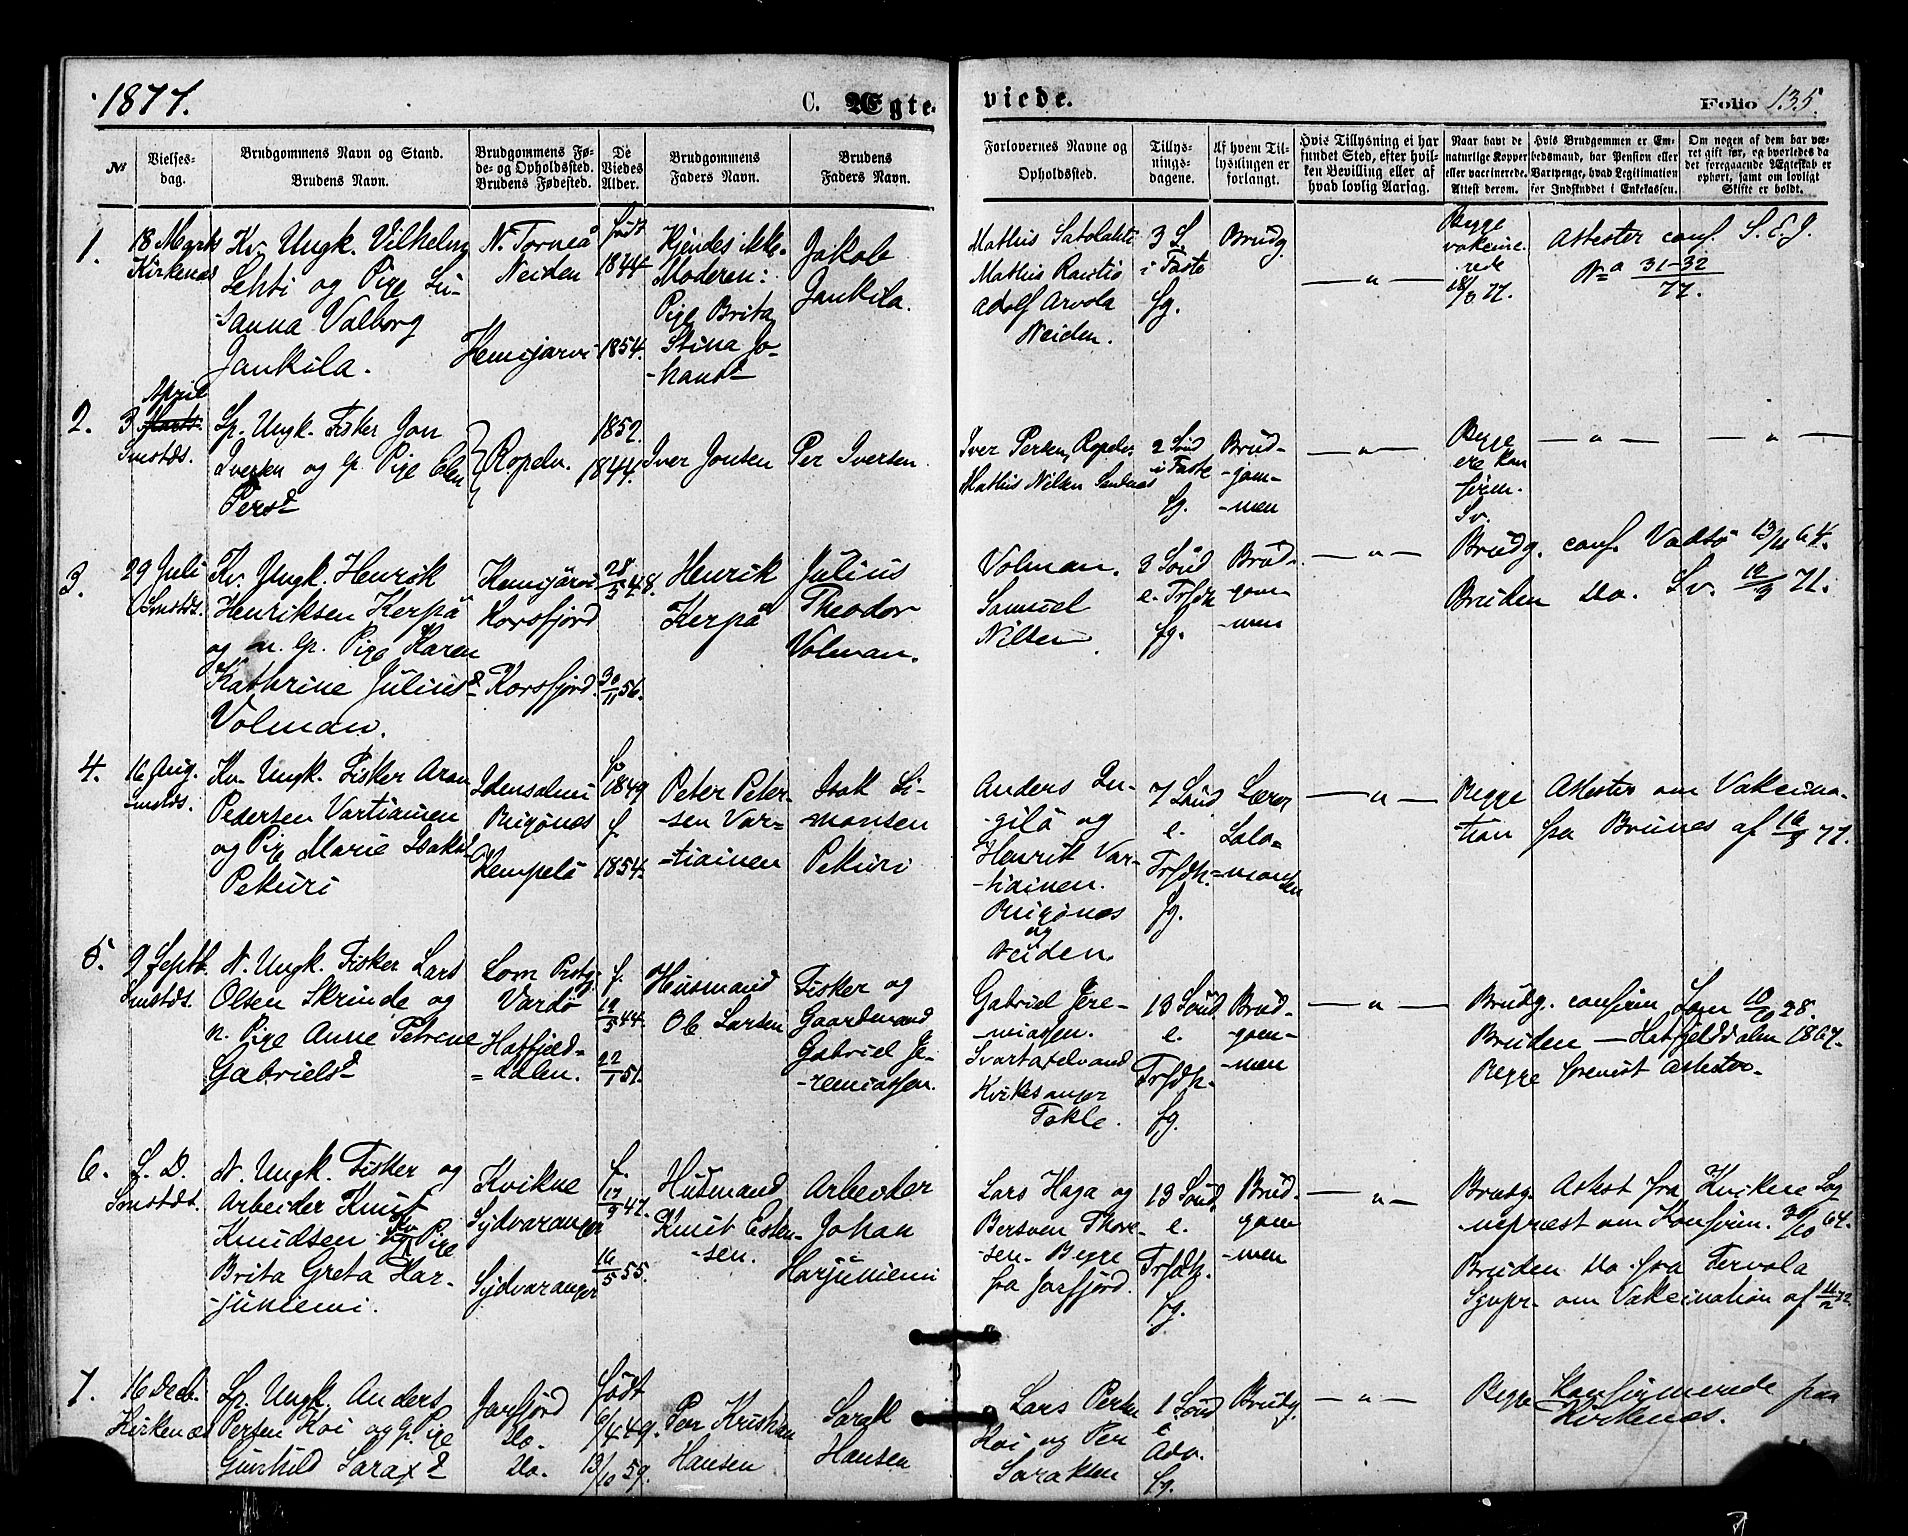 1877.
C. Ægte-
viede.
Folio 135.
№
Vielses-
dag.
Brudgommens Navn og Stand.
Brudens Navn.
Brudgommens Fø-
de- og Opholdssted.
Brudens Fødested.
De
Viedes
Alder.
Brudgommens
Faders Navn.
Brudens
Faders Navn.
Forlovernes Navne og
Opholdssted.
Tillys-
nings-
dagene.
Af hvem Til-
lysningen er
forlangt.
Hvis Tillysning ei har
fundet Sted, efter hvil-
ken Bevilling eller af
hvad lovlig Aarsag.
Naar havt de
naturlige Kopper
eller vaccinerede.
Attest derom.
Hvis Brudgommen er Em-
bedsmand, har Pension eller
Vartpenge, hvad Legitimation
for Indskuddet i Enkekassen.
Om nogen af dem har væ-
ret gift før, og hvorledes da
det foregaaende Ægteskab er
ophørt, samt om lovligt
Skifte er holdt.
1.
18 Marts
Kirkenæs
Kv. Ungk. Vilhelm
Lehti og Pige Su-
-sanna Valborg
Jankila.
N. Torneå
Neiden
Kemijarvi
født
1844
1854.
Kjendes ikke.
Moderen:
Pige Brita
Stina Jo-
-hansd
Jakob
Jankila.
Mathis
Mathis Rautio
Adolf Arvola
Neiden.
3 S.
i Faste
fg.
Brudg.
— " —
Begge
vakcine-
rede
18/3 77.
Attester conf. S. E. J.
No 31-32
77.
2.
3 April
Marts
Smstds.
Lp. Ungk. Fisker Jon
Iversen og lp. Pige Elen
Persd
Ropelv.
1852.
1844.
Iver Jonsen
Per Iversen.
Iver Persen, Ropelv.
Mathis Nilsen Sandnæs
2 Sønd
i Faste
fg.
Brud-
-gom-
-men
— " —
Begge
ere kon
firm.
Sv.
— " —
— " —
3.
29 Juli
Smstds.
Kv. Ungk. Henrik
Henriksen Kerpä
og n. lp. Pige Karen
Kathrine Juliusd
Volman.
Kemijärvi
Korsfjord
Korsfjord.
28/5 48.
30/11 56.
Henrik
Kerpä
Julius
Theodor
Volman.
Volman.
Samuel
Nilsen
3 Sønd
e. Trfdk
fg.
Brud-
gom-
-men
— " —
Brudg. conf. Vadsø 13/11 64.
Bruden Do. Sv. 10/9 71.
4.
16 Aug.
Smstds.
Kv. Ungk. Fisker Aron
Pedersen Vartiainen
og Pige Marie Isaksd
Pekuri
Idensalmi
Bugønæs
Kempele
fø
1849
f.
1854.
Peter Peter-
-sen Var-
-tiainen
Isak Si-
-monsen
Pekuri
Anders In-
-gilä og
Henrik Var-
-tiainen.
Bugønæs
og
Neiden
7 Sønd
e.
Trfdk.
fg.
Lærer
Salo-
=monsen
— " —
Begge
Attester om Vakcina-
-tion fra Brunes af 16/8 77.
5.
9 Septb.
Smstds.
N. Ungk. Fisker Lars
Olsen Skrinde og
n. Pige Anne Petrene
Gabrielsd
Lom Prstg.
Vardø
Hatfjeld-
=dalen.
f.
19/5 44.
22/1 51.
Husmand
Ole Larsen
Fisker og
Gaardmand
Gabriel Je-
-remiassen.
Gabriel Jere-
-miassen.
Svartaxelvand
Kirkesanger
Fokle.
13 Sønd
e.
Trfdk.
fg.
Brud-
gom-
-men
— " —
Brudg. confirm Lom
Bruden — Hatfjelddalen 1867.
Begge forevist Attester.
6.
S. D.
Smstds.
N. Ungk. Fisker og
Arbeider Knut
Knudsen og Kv. Pige
Brita Greta Har-
-juniemi.
Kvikne
Sydvaranger
Sydvaranger
f.
17/9 47.
16/5 55.
Husmand
Knut Esten-
-sen.
Arbeider
Johan
Harjuniemi
Lars Haga og
Bersven Thore-
-sen. Begge
fra Jarfjord.
13 Sønd.
e.
Trfdk.
fg.
Brud-
gom
-men
— " —
Brudg. Attest fra Kvikne Sog
-nepræst om Konfirm. 30/10 64.
Bruden Do. fra Tervola
Sgnpr. om Vakcination af
7.
16 Decb.
Kirkenæs
Lp. Ungk. Anders
Persen Koi og lp. Pige
Gunhild Saraxd
Jarfjord
Do.
Do.
født
6/4 49.
13/10 59.
Per Kristian
Hansen
Sarak
Hansen
Lars Persen
Koi og Per
Saraksen
1 Sønd
i
Adv.
fg.
Brudg.
— " —
Begge Konfirmerede paa
Kirkenæs.